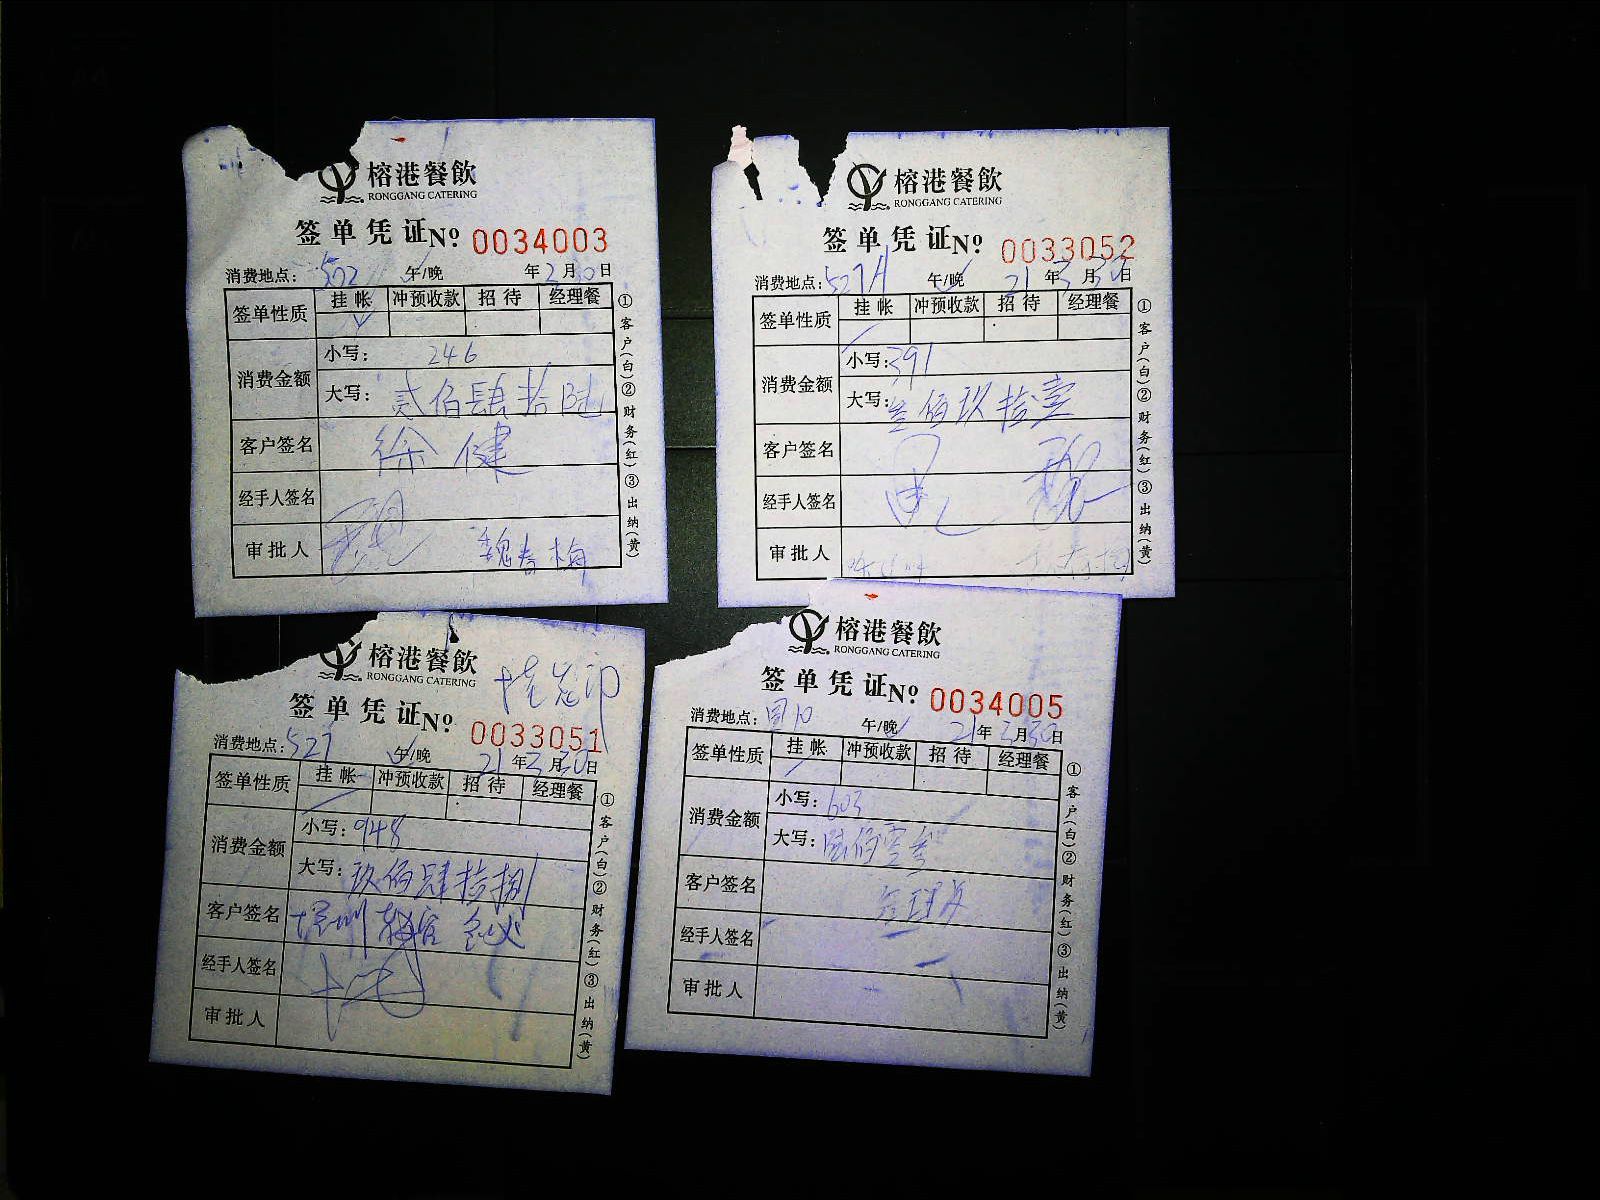 榕港餐飲
RONGGANG CATERING
签单凭证 № 0034003
消费地点: 502 午/晚 年 月30日
签单性质 挂帐 冲预收款 招待 经理餐
消费金额 小写: 246
大写: 贰佰肆拾陆
客户签名 徐健
经手人签名
审批人 魏春梅
①客户(白)②财务(红)③出纳(黄)
榕港餐飲
RONGGANG CATERING
签单凭证 № 0033052
消费地点: 527A 午/晚 21年3月30日
签单性质 挂帐 冲预收款 招待 经理餐
消费金额 小写: 391
大写: 叁佰玖拾壹
客户签名
经手人签名
审批人
①客户(白)②财务(红)③出纳(黄)
榕港餐飲
RONGGANG CATERING
签单凭证 № 0033051
消费地点: 527 午/晚 21年3月30日
签单性质 挂帐 冲预收款 招待 经理餐
消费金额 小写: 948
大写: 玖佰肆拾捌
客户签名
经手人签名
审批人
①客户(白)②财务(红)③出纳(黄)
榕港餐飲
RONGGANG CATERING
签单凭证 № 0034005
消费地点: 午/晚 21年3月30日
签单性质 挂帐 冲预收款 招待 经理餐
消费金额 小写: 603
大写: 陆佰零叁
客户签名
经手人签名
审批人
①客户(白)②财务(红)③出纳(黄)